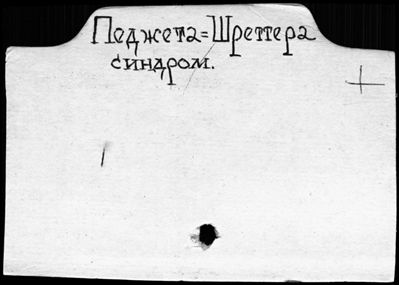 Педжета=Шреттера
синдром.